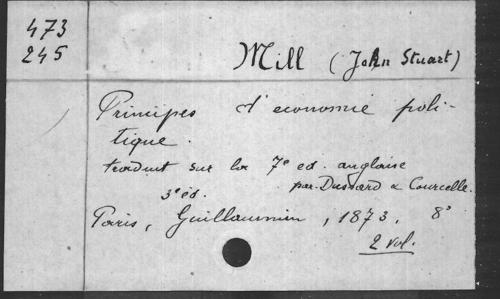 473
245
Mill (John Stuart)
Principes d'economie poli-
tique.
traduit sur la 7e ed. anglaise
par Dussard & Courcelle.
3e éd.
Paris, Guillaumin, 1873, 8°
2 vol.